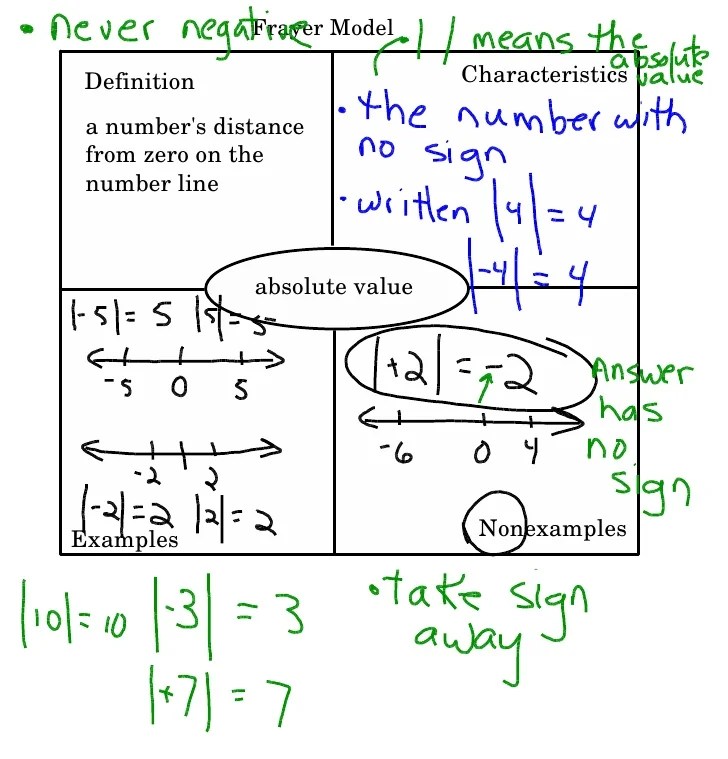 • never negative
Frayer Model
| | means the
absolute
value
Definition
a number's distance
from zero on the
number line
Characteristics
• the number with
no sign
• written |4| = 4
|-4| = 4
absolute value
|-5| = 5 |5| = 5
-5 0 5
-2 2
|-2| = 2 |2| = 2
Examples
|+2| = -2
-6 0 4
Answer
has
no
sign
Nonexamples
|10| = 10 |-3| = 3
|+7| = 7
• take sign
away